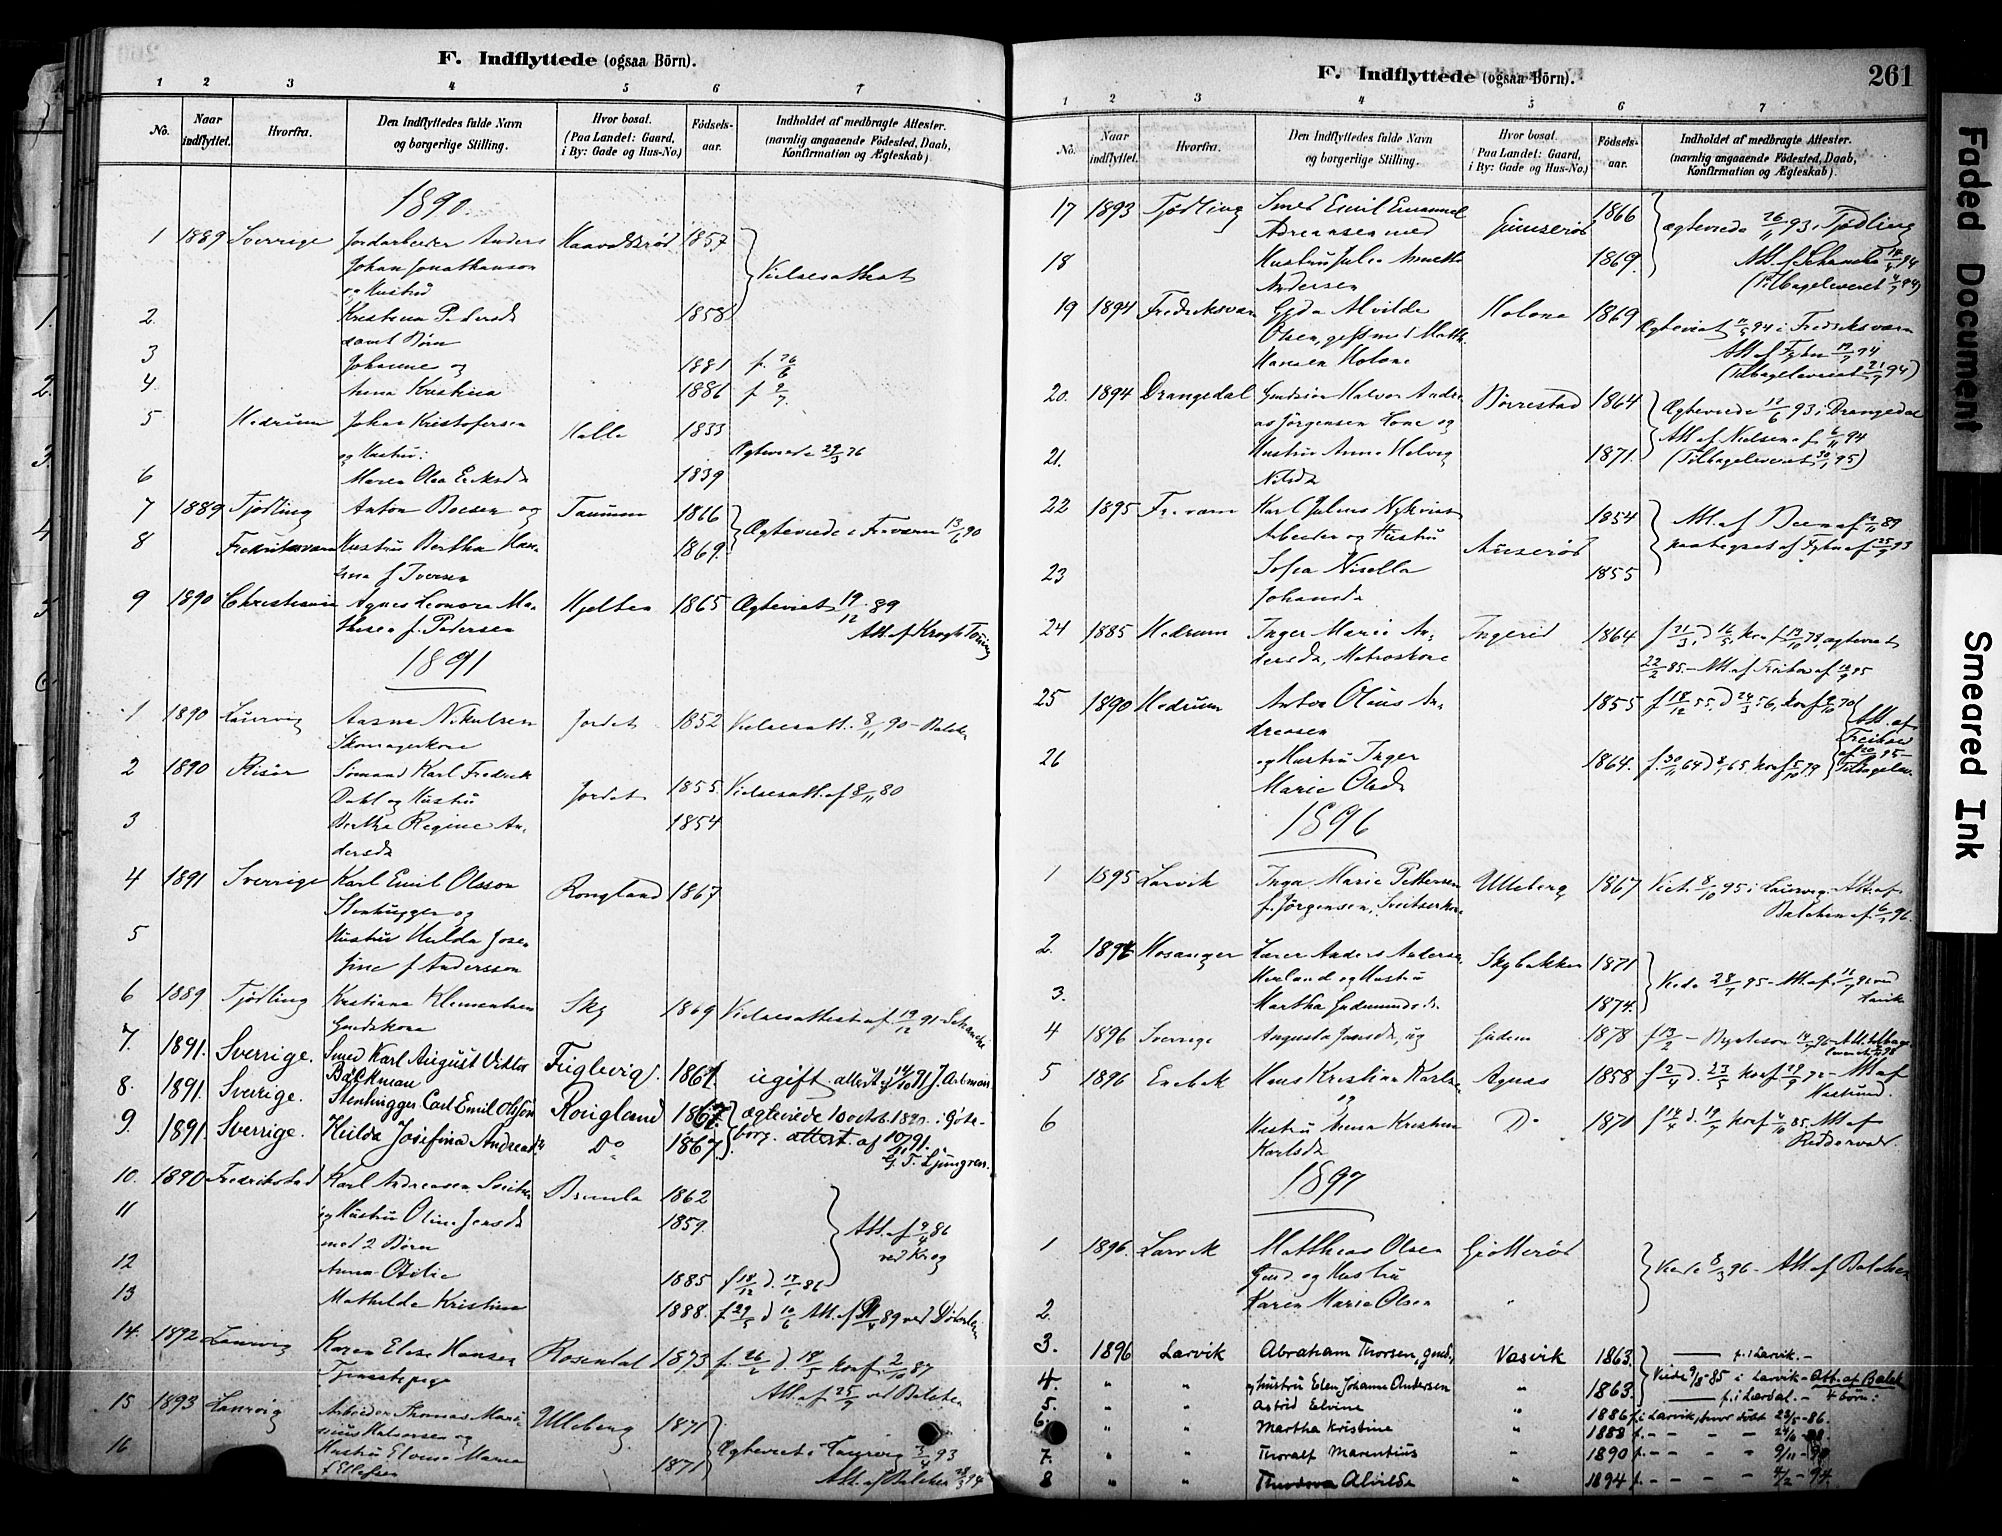 F. Indflyttede (ogsaa Börn).
1 2 3 4 5 6 7
No. Naar indflyttet. Hvorfra. Den Indflyttedes fulde Navn og borgerlige Stilling. Hvor bosat. (Paa Landet: Gaard, i By: Gade og Hus-No.) Födsels-aar. Indholdet af medbragte Attester. (navnlig angaaende Födested, Daab, Konfirmation og Ægteskab)
1890.
1 1889 Sverrige Jordarbeider Anders Kaavaldsrød 1857
Johan Jonathanson Vielsesattest
og Hustru
2. Kristina Petersd 1858
samt Børn
3 Johanne og 1881 f. 26/6
4. Anna Kristina 1886 f 2/7.
5 Hedrum Johan Kristofersen Halle 1833
og Hustru: Ægteviede 29/3 76
6 Maren Olea Eriksd 1839
7 1889 Tjødling Anton Boesen og Taumen 1866
8 Fredriksværn Hustru Bertha Han- 1869. Ægteviede i Fr.værn 13/6 90
sine f Iversen
9 1890 Christiania Agnes Leonora Ma- Hjelten 1865 Ægteviet 19/12 89
thesen f. Pedersen Att. af Krogh Tonning
1891
1 1890 Laurvig Aasne Nikulsen Jordet 1852 Vielsesatt. 8/11 90 - Balchen
Skomagerkone
2 1890 Risør Sömand Karl Fredrik Jordet 1855. Vielsesatt. af 8/11 80
Dahl og Hustru
3 Berthe Regine An- 1854
dersd
4 1891 Sverrige Karl Emil Olsson Rongland 1867
Stenhugger og
5 Hustru Hulda Jose-
fine f Andersson
6 1889 Tjødling Kristiane Klementsen Sky 1869 Vielsesattest af 19/12 91 Schancke
Gmdskone
7. 1891. Sverrige. Smed Karl August Viktor Fuglevig. 1867. ugift. attest af 14/10 91 J. Ahlman
Bäckman
8. 1891. Sverige. Stenhugger Carl Emil Olsson Rongland 1867. ægteviede 10 octob. 1890. i Göte-
9. 1891. Sverrige. Hilda Josefina Andreasd. Do 1867. borg. attest af 10/11 91.
G. T. Ljungren.
10. 1890 Fredrikstad Karl Andreasen Sveitser Brunla 1862
11 og Hustru Oline Jensd 1859. Att. af 9/4 86
med 2 Børn ved Krog
12 Anna Otilie 1885 f 18/12 d. 17/1 86
13 Mathilde Kristine 1888. f 29/5 d 10/6
14. 1892 Laurvig Karen Elise Hansen Rosendal 1873 f. 26/2 d. 18/5 konf 2/10 87
Tjenestepige Att. af 25/7 ved Balchen
15 1893 Laurvig Arbeider Thomas Mari- Ulleberg 1871
nius Halvorsen og Ægteviet i Laurvig 3/4 93
16 Hustru Elvine Marie 1871 Att. af Balchen 28/3 94
f Ellefsen
F. Indflyttede (ogsaa Börn). 261
1 2 3 4 5 6 7
No. Naar indflyttet. Hvorfra. Den Indflyttedes fulde Navn og borgerlige Stilling. Hvor bosat. Paa Landet: Gaard, i By: Gade og Hus-No.) Födsels-aar. Indholdet af medbragte Attester. (navnlig angaaende Födested, Daab, Konfirmation og Ægteskab).
17 1893 Tjødling Smed Emil Emanuel Gumserød 1866
Andreansen med ægteviede 26/11 93 i Tjødling
18 Hustru Julie Annette 1869. Att. af Schancke
Andersen (Tilbageleveret 94)
19 1894 Fredriksværn Gyda Alvilde Holane 1869 Ægteviet 11/5 94 i Fredriksværn
Olsen, gift med Math. Att. af Fyhn 19/7 94
Hansen Holane (Tilbageleveret 21/9 94)
20. 1894 Drangedal Gmdsön Halvor Andre- Børrestad 1864 Ægteviede 12/6 93 i Drangedal
as Jørgensen Lone og Att. af Nielsen af 6/11 94
21. Hustru Anne Helvig 1871. (Tilbageleveret 30/1 95)
Nilsd
22 1895 Fr.værn Karl Julius Nykvist 1854 Att. af Been af 9/11 89
Arbeider og Hustru Auserød paategnet af Fyhn af 25/9 93
23 Sofia Nisella 1855
Johansd
24 1885 Hedrum Inger Marie An- Ingerid 1864 f 31/3, d 16/5, konf 13/10 78, ægteviet
dersd, Matroskone 22/2 85. - Att. af Freihow af 12/7 95
25 1890 Hedrum Anton Olaus An- 1855 f 18/12 55. d 24/3 56, konf 9/10 70
dreasen Att. af Freihow
26 og Hustru Inger 1864. f. 30/11 64 d 8/1 65. konf 5/10 79 af 20/9 95 - Tilbagelev.
Marie Olsd
1896
1 1895 Larvik Inga Marie Pettersen Ulleberg 1867 Viet. 8/10 95 i Laurvig. Att. af
f. Jørgensen, Sveitserkone Balchen af 6/1 96.
2. 1894 Hosanger Lærer Anders Anderss. Skybakken 1871
Herland og Hustru Viede 28/7 95 - Att. af 11/1 96 ved
3. Martha Gudmundsd. 1874. Larvik
4 1896 Sverrige Augusta Jansd, ug Gudem 1878 f 13/2
5 1896 Enebak Hans Kristian Karls. Agnes 1858 f 2/4 d. 23/5 konf 29/9 72 - Att af
og
6 Hustru Anna Kristine Do 1871 f 14/4 d. 19/7 konf 4/10 85. Att af
Karlsd Riddervold
1897
1 1896. Larvik Matthias Olsen Gjotterød
Gmd. og Hustru Viede 8/3 96 - Att. af Balchen
2. Karen Marie Olsen "
3. 1896 Larvik Abraham Thorsen, gmd., Vasvik 1863. — f. i Larvik. -
4. " " og hustru Elen Johanne Andersen " 1863. Viede 9/8-85 i Larvik - Att. af Balch
5. " " Astrid Elvine " 1886 f. i Larvik, hvor døbt 23/5-86. — f. i Lærdal. - 4 børn:
6. " " Martha Kristine " 1888 f. - - - - 24/6 - 88.
7. " " Thoralf Marentius " 1890 f. - - - - 9/11 - 90
8 " " Theodora Alvilde " 1894 f. - - - - 4/2 - 94.
Faded Document
Smeared Ink